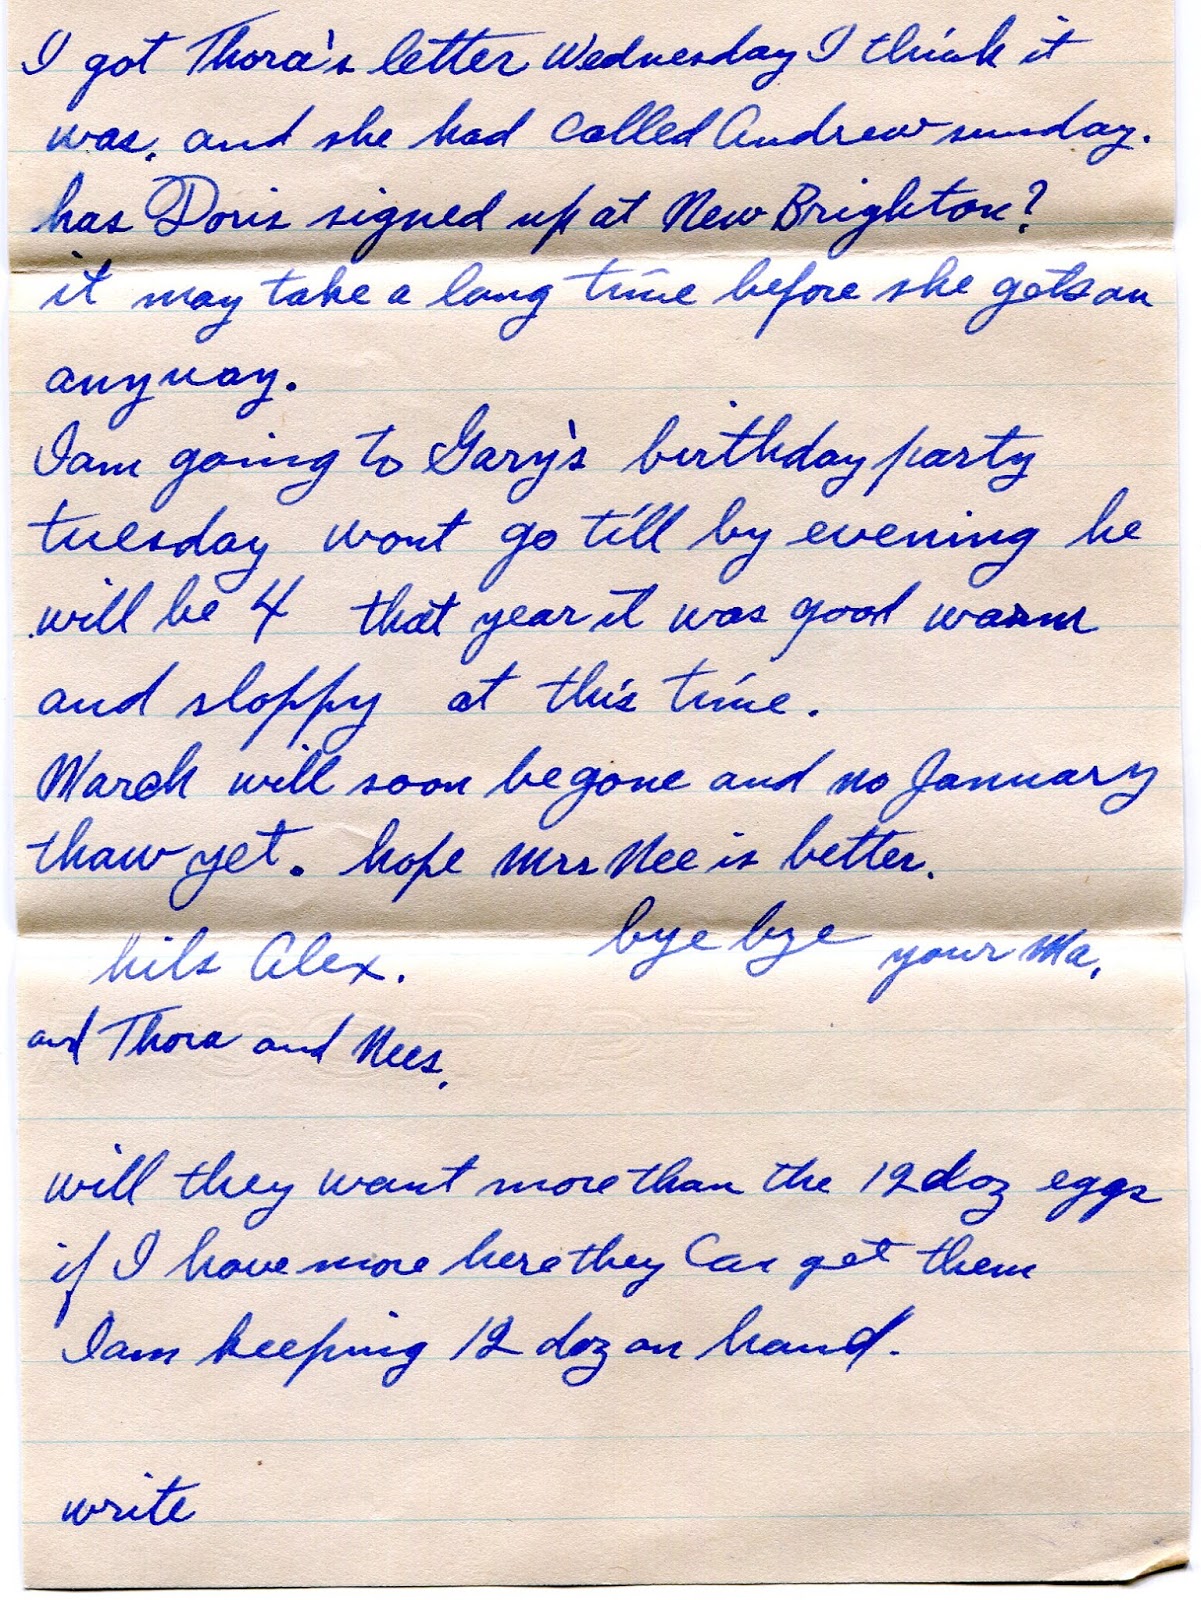 I got Thora's letter Wednesday I think it
was. and she had called Andrew sunday.
has Doris signed up at New Brighton?
it may take a long time before she gets on
anyway.
I am going to Gary's birthday party
tuesday wont go till by evening he
will be 4 that year it was good warm
and sloppy at this time.
March will soon be gone and no January
thaw yet. hope Mrs Nee is better.
bye bye your Ma,
hils Alex.
and Thora and Nees.
will they want more than the 12 doz eggs
if I have more here they Can get them
I am keeping 12 doz on hand.
write